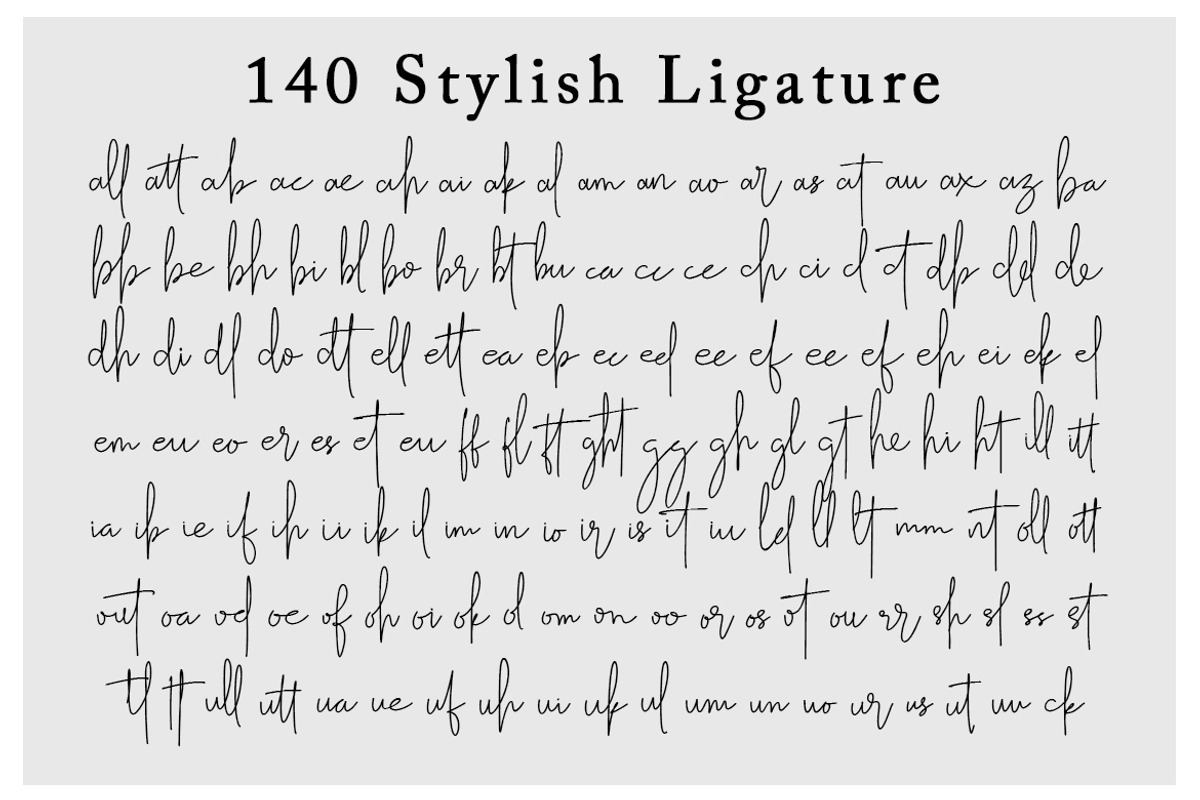 140 Stylish Ligature
all att ab ac ae ah ai ak al am an ao ar as at au ax az ba
bb be bh bi bl bo br bt bu ca cc ce ch ci cl ct db dd de
dh di dl do dt ell ett ea eb ec ed ee ef ee ef eh ei ek el
em eu eo er es et eu ff fl ft ght gg gh gl gt he hi ht ill itt
ia ib ie if ih ii ik il im in io ir is it iu ld ll lt mm nt oll ott
out oa od oe of oh oi ok ol om on oo or os ot ou rr sh sl ss st
tl tt ull utt ua ue uf uh ui uk ul um un uo ur us ut uu ck